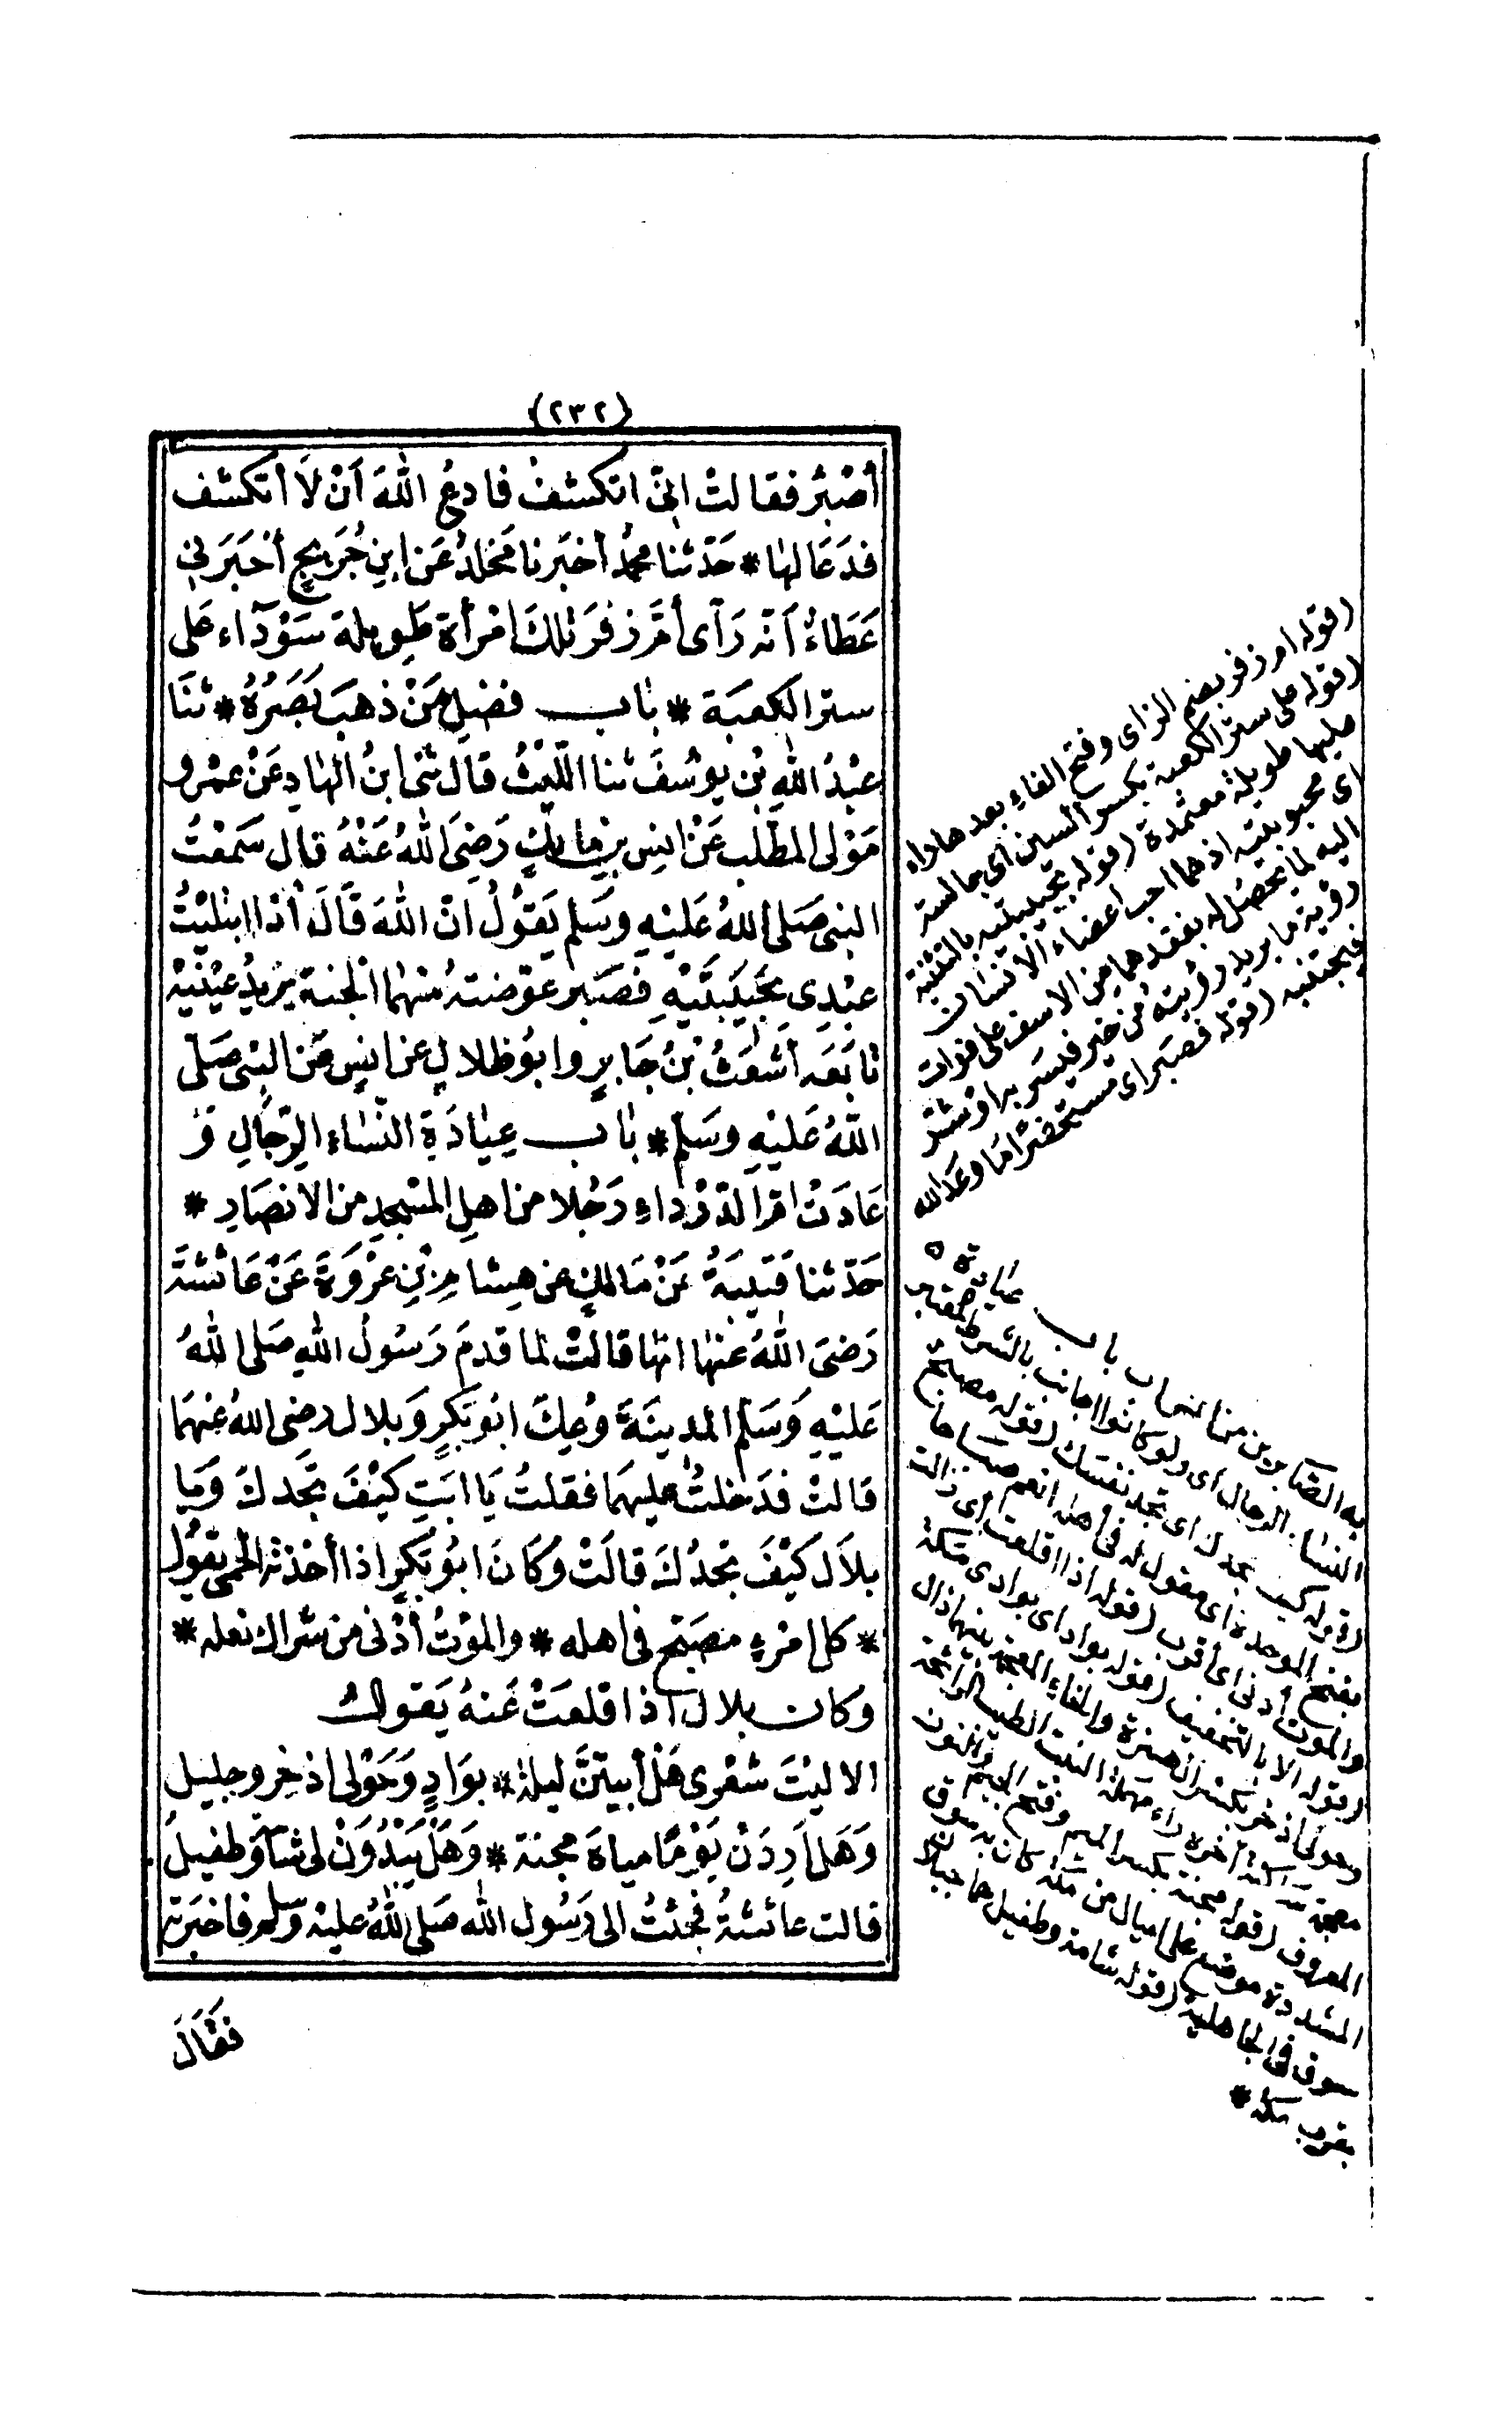 (٢٣٢)
أَصْبِرُ فقالتْ اِنّي اتكشفُ فادعُ اللّٰهَ اَنْ لَا أتكشف
فدَعَا لها * حَدّثنا محمدٌ أخبَرنا مَخلدٌ عَن ابنِ جُرَيجٍ أخبَرَني
عَطَاءٌ اَنّه رَآى أمَّ زفَرَ تلكَ امْرأة طَوِيلة سَوْدآء عَلى
ستر الكعبَة * بَاب فضلِ مَنْ ذهَبَ بَصَرُهُ * ثنَا
عبْدُ اللّٰهِ بْن يوسُفَ ثنا اللّيْثُ قال ثنى ابنُ الهَادِ عَنْ عمْرو
مَوْلى المطّلب عَنْ انسِ بنِ مالكٍ رَضِىَ اللّٰهُ عَنْهُ قال سَمعْتُ
النبىَّ صَلى اللّٰهُ عَليْهِ وسَلم يَقُولُ انّ اللّٰهَ قَالَ اذا ابتليْتُ
عبْدِى بحَبيبَتَيْهِ فصَبر عوّضتهُ مِنْهمَا الجنة يرِيدُ عيْنيْهِ
تابَعَه أشعَثُ بْنُ جَابرٍ وابُو ظلالٍ عن انسٍ عَن النبى صَلى
اللّٰهُ عَليْهِ وسَلم * بَاب عِيادَةِ النسَاء الرّجَالِ وَ
عَادَتْ امّ الدّرْداءِ رَجُلا من اهلِ المسْجدِ من الانصَارِ *
حَدّثنا قتَيبَةُ عَنْ مَالكٍ عن هِشامِ بْنِ عرْوَةَ عَنْ عَائشةَ
رَضىَ اللّٰهُ عنهَا انهَا قالتْ لما قدمَ رَسُولُ اللّٰهِ صَلى اللّٰهُ
عَليْهِ وَسَلم المدينَةَ وُعِكَ ابُو بَكرٍ وَبلال رضى اللّٰهُ عنهمَا
قالتْ فدَخلتُ عليهمَا فقلتُ يَا ابَتِ كيْفَ تجَدكَ وَيا
بلاَل كيْفَ تجدُكَ قالَتْ وَكانَ ابُو بَكرٍ اذا أخذتْه الحمى يقُول
* كل امْرءٍ مصَبّح فى اهله * والموْتُ أدْنى من شراك نعله *
وكان بلال اذا قلعَتْ عَنهُ يَقول
الا ليْتَ شعْرى هَلْ أبيتنَّ ليلة * بوَادٍ وَحَوْلى اذخِر وجليل
وَهَل اَرِدَنْ يَوْمًا مياهَ مجنة * وَهَلْ يَبْدُوَنْ لى شامَة وطفيلُ
قالت عائشةُ فجئتُ الى رَسُول اللّٰه صَلى اللّٰهُ عليْه وسلم فاخبَرته
فقَالَ
(قوله ام زفر بضم الزاى وفتح الفاء بعدها راء
(قوله على ستر الكعبة بكسر السين اى جالسة
عليها طويلة معتمدة (قوله بحبيبتيه بالتثنية
اى محبوبتيه اذ هما احب اعضاء الانسان
اليه لما يحصل له بفقدهما من الاسف على فوات
رؤية ما يريد رؤيته من خير فيسر به او شر
فيجتنبه (قوله فصبر اى مستحضرا ما وعد الله
به الصابرين من الثواب باب عيادة
النسا الرجال اى ولو كانوا اجانب بالشرط المعتبر
(قوله كيف تجدك اى تجد نفسك (قوله مصبح
بفتح الموحدة اى مقول له فى اهله انعم صباحا
والموت ادنى اى أقرب (قوله اذا اقلعت اى زالت
(قوله الا بالتخفيف (قوله بواد اى بوادى مكة
وحولى اذخر بكسر الهمزة والخاء المعجمة بينهما ذال
معجمة ساكنة آخره راء مهملة النبت الطيب الرائحة
المعروف (قوله مجنة بكسر الميم وفتح الجيم والنون
المشددة موضع على اميال من مكة كان به سوق
سوق فى الجاهلية (قوله شامة وطفيل هما جبلان
بقرب مكة *